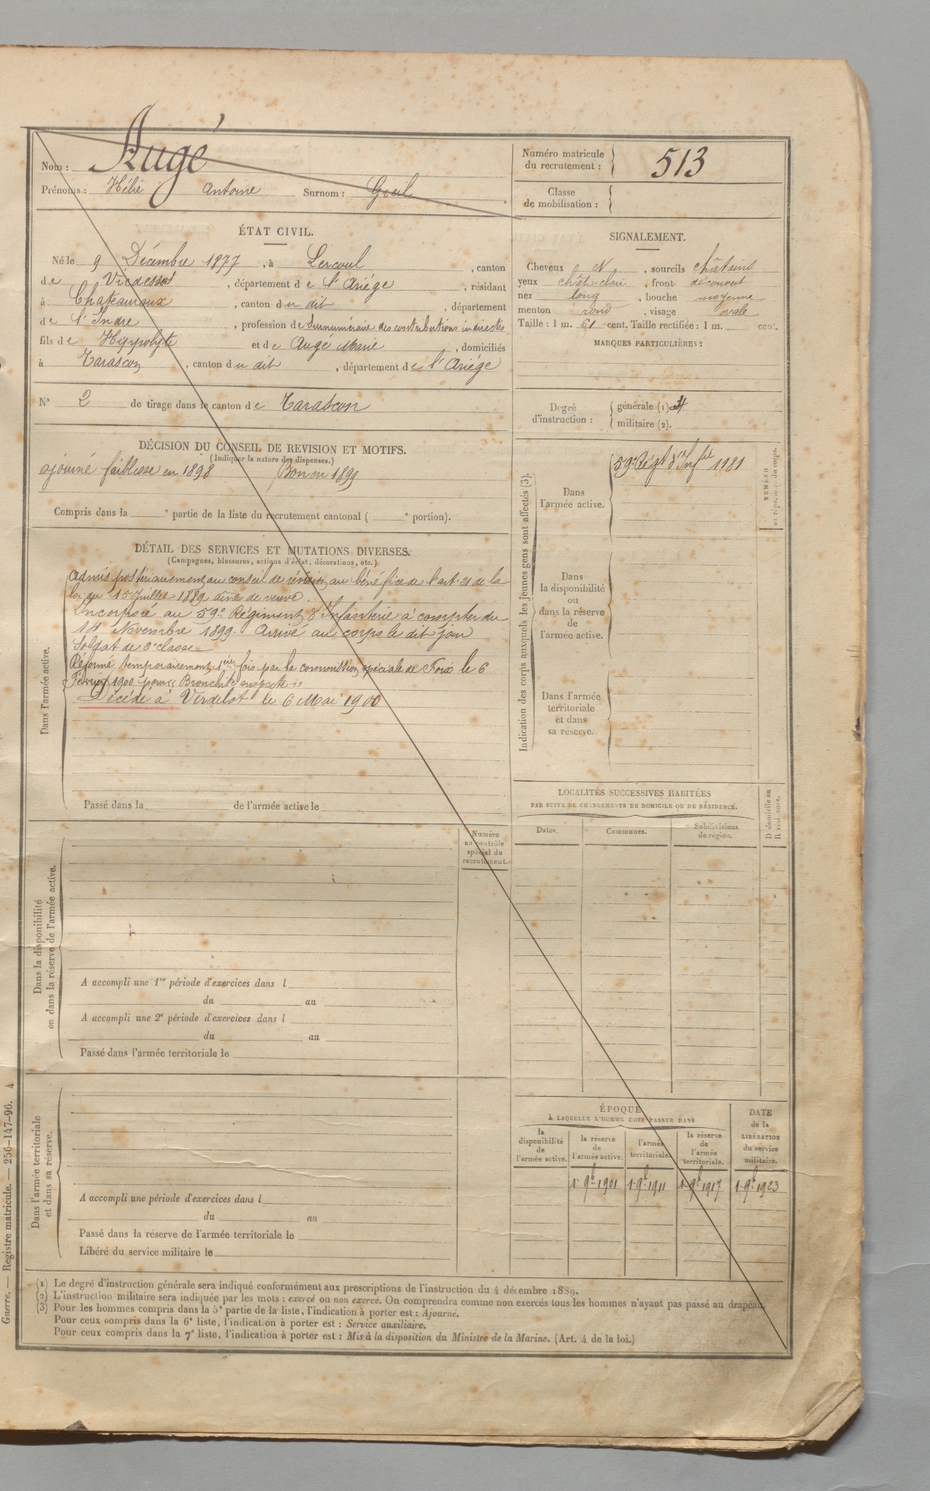 Nom : Augé
Prénoms : Hélie Antoine Surnom :
Numéro matricule du recrutement : 513
Classe de mobilisation :
ÉTAT CIVIL.
Né le 9 Décembre 1877, à Lercoul, canton
de Vicdessos, département de l'Ariége, résidant
à Chateauroux, canton du dit, département
de l'Indre, profession de Surnuméraire des contributions indirectes
fils de Hippolyte et de Augé Marie, domiciliés
à Tarascon, canton du dit, département de l'Ariége
N° 2 de tirage dans le canton de Tarascon
SIGNALEMENT.
Cheveux N, sourcils châtains
yeux chât clair, front découvert
nez long, bouche moyenne
menton rond, visage ovale
Taille : 1 m. 61 cent. Taille rectifiée : 1 m. cent.
MARQUES PARTICULIÈRES :
Degré d'instruction : générale (1)
militaire (2).
DÉCISION DU CONSEIL DE REVISION ET MOTIFS.
(Indiquer la nature des dispenses.)
ajourné faiblesse en 1898 Bon en 1899
Compris dans la e partie de la liste du recrutement cantonal ( e portion).
DÉTAIL DES SERVICES ET MUTATIONS DIVERSES.
(Campagnes, blessures, actions d'éclat, décorations, etc.)
Dans l'armée active.
Admis postérieurement au conseil de révision au bénéfice de l'art 21 de la
loi du 15 Juillet 1889 ainé de veuve.
Incorporé au 59e Régiment d'Infanterie à compter du
14 Novembre 1899. Arrivé au corps le dit jour
Soldat de 2e classe
Réformé temporairement 1ère fois par la commission spéciale de Foix le 6
Février 1900 pour "Bronchite suspecte"
Décédé à Verdelot le 6 Mai 1900
Passé dans la de l'armée active le
Indication des corps auxquels les jeunes gens sont affectés (3).
Dans l'armée active.
59e Régt d'Infie 1981
NUMÉRO
Dans la disponibilité ou dans la réserve de l'armée active.
Dans l'armée territoriale et dans sa réserve.
LOCALITÉS SUCCESSIVES HABITÉES
PAR SUITE DE CHANGEMENTS DE DOMICILE OU DE RÉSIDENCE.
Dates. Communes. Subdivisions de région.
D domicile ou R résidence.
Numéro au contrôle spécial du recrutement.
Dans la disponibilité ou dans la réserve de l'armée active.
A accompli une 1re période d'exercices dans l
du au
A accompli une 2e période d'exercices dans l
du au
Passé dans l'armée territoriale le
Dans l'armée territoriale et dans sa réserve.
A accompli une période d'exercices dans l
du au
Passé dans la réserve de l'armée territoriale le
Libéré du service militaire le
ÉPOQUE
À LAQUELLE L'HOMME DOIT PASSER DANS
la disponibilité de l'armée active.
la réserve de l'armée active.
l'armée territoriale.
la réserve de l'armée territoriale.
DATE de la LIBÉRATION du service militaire.
1 9bre 1901 1 9bre 1911 1 9bre 1917 1 9bre 1923
(1) Le degré d'instruction générale sera indiqué conformément aux prescriptions de l'instruction du 4 décembre 1889.
(2) L'instruction militaire sera indiquée par les mots : exercé ou non exercé. On comprendra comme non exercés tous les hommes n'ayant pas passé au drapeau.
(3) Pour les hommes compris dans la 5e partie de la liste, l'indication à porter est : Ajourné.
Pour ceux compris dans la 6e liste, l'indication à porter est : Service auxiliaire.
Pour ceux compris dans la 7e liste, l'indication à porter est : Mis à la disposition du Ministre de la Marine. (Art. 4 de la loi.)
Guerre. — Registre matricule. — 256-147-96. 4